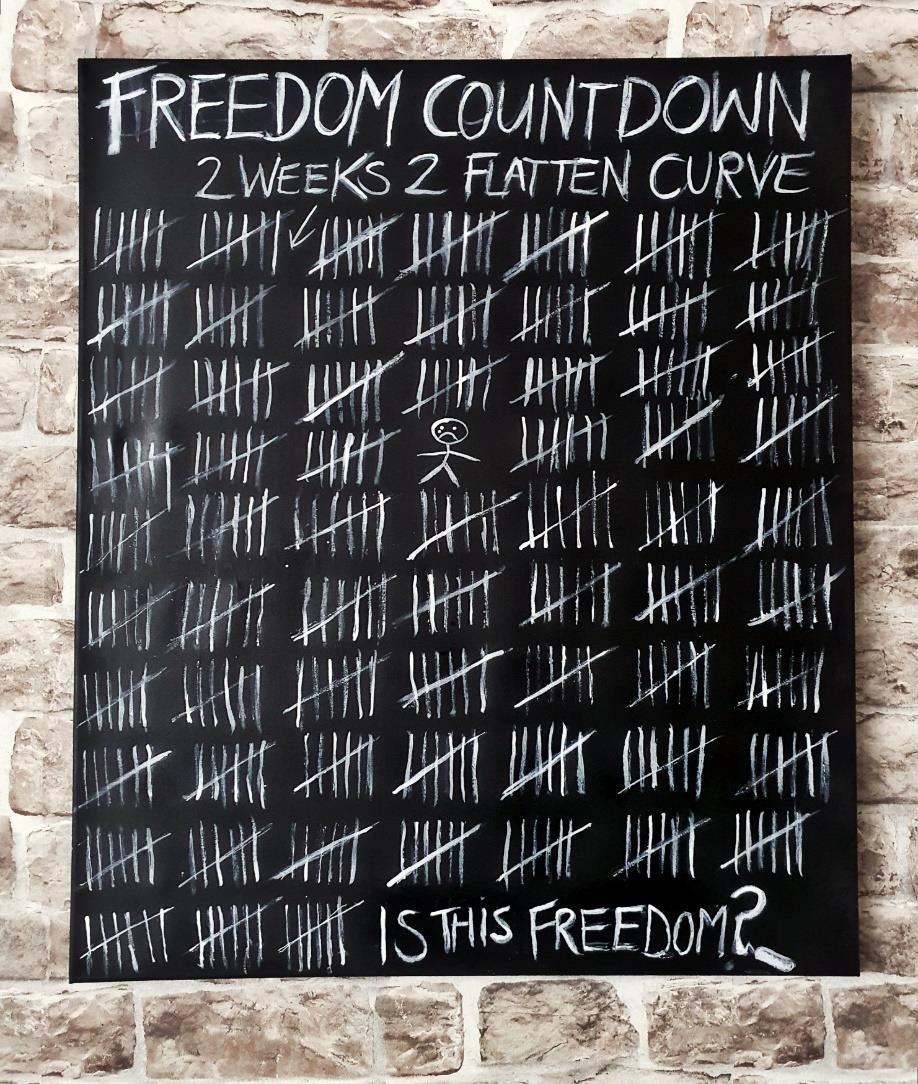 FREEDOM COUNTDOWN
2 WEEKS 2 FLATTEN CURVE
IS THIS FREEDOM?